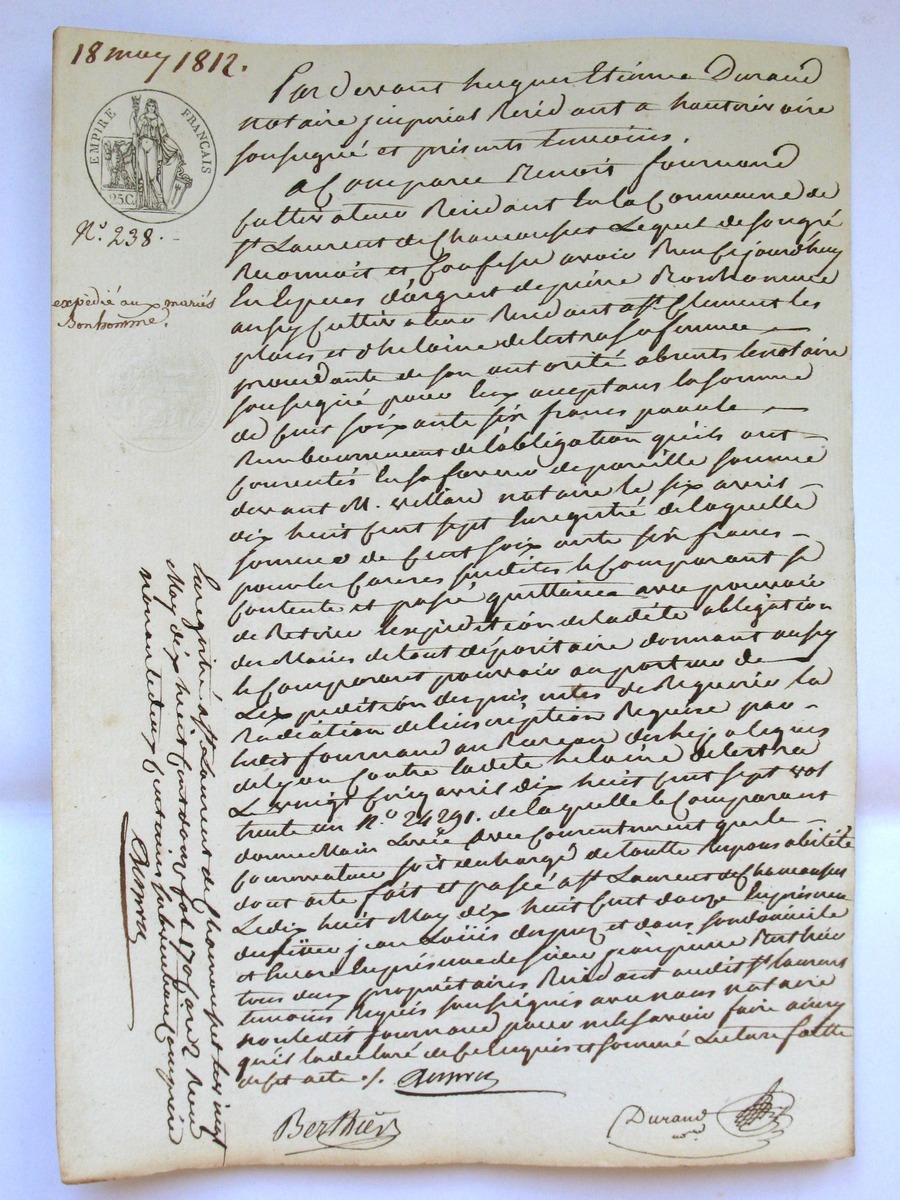 18 may 1812.
EMPIRE FRANÇAIS
25 C.
N.º 238.
expédié aux mariés
Bonhomme.
Par devant hugues Etienne Durand
notaire jmpérial Résidant a hauterivoire
soussigné et présents temoins.
a Comparu Benoit fournand
Cultivateur Résidant en la Commune de
St Laurent de Chamousset Lequel de son gré
Reconnoit et Confesse avoir Reçu Cejourdhuy
En Espèces d'argent de pierre Bonhomme
aussy Cultivateur Résidant a St Clement les
places et d'helaine delestra sa femme
procédante de son autorité absents le notaire
soussigné pour Eux aceptans la somme
de Cent soixante six francs pour le
Remboursement de l'obligation qu'ils ont
Consentis En sa faveur de pareille somme
devant M. Villard notaire le six avril
dix huit Cent sept Enregistré de laquelle
somme de Cent soixante six francs
pour les Causes susdites le Comparant se
Contente et passe quittance avec pouvoir
de Retirer l'expedition de ladite obligation
des Mains de tout dépositaire donnant aussy
le Comparant pouvoir au porteur de
L'expedition des présentes de Requerir la
Radiation de l'inscription Requise par
ledit fournand au Bureau des hypoteques
de lyon Contre ladite helaine delestra
Le vingt Cinq avril dix huit Cent sept vol
trente un N.º 24290. de laquelle le Comparant
donne Main Levée avec Consentement que le
Conservateur soit déchargé de toutte Responsabilité
dont acte fait et passé a St Laurent de Chamousset
Le dix huit May dix huit Cent douze En présence
du sieur jean Loüis et dans son domicile
et Encore En présence de sieur jean pierre Berthier
tous deux propriétaires Résidant audit St laurent
temoins Requis soussignés avec nous notaire
non ledit fournand pour ne le savoir faire ainsy
qu'il la déclaré de Ce Enquis et sommé Lecture faitte
dudit acte ./.
Berthier
Durand
nore
Enregistré a St Laurent de Chamousset le vingt
May dix huit Cent douze fol 170 Case 2 Reçu
un franc deux Centimes subvention Comprise